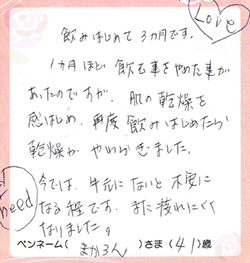 Love
飲みはじめて3カ月です。
1カ月ほど飲む事をやめた事が
あったのですが、肌の乾燥を
感じはじめ、再度飲みはじめたら
乾燥がやわらぎました。
need
今では、手元にないと不安に
なる程です。また疲れにくく
なりました。
ペンネーム(まか3ん)さま(41)歳